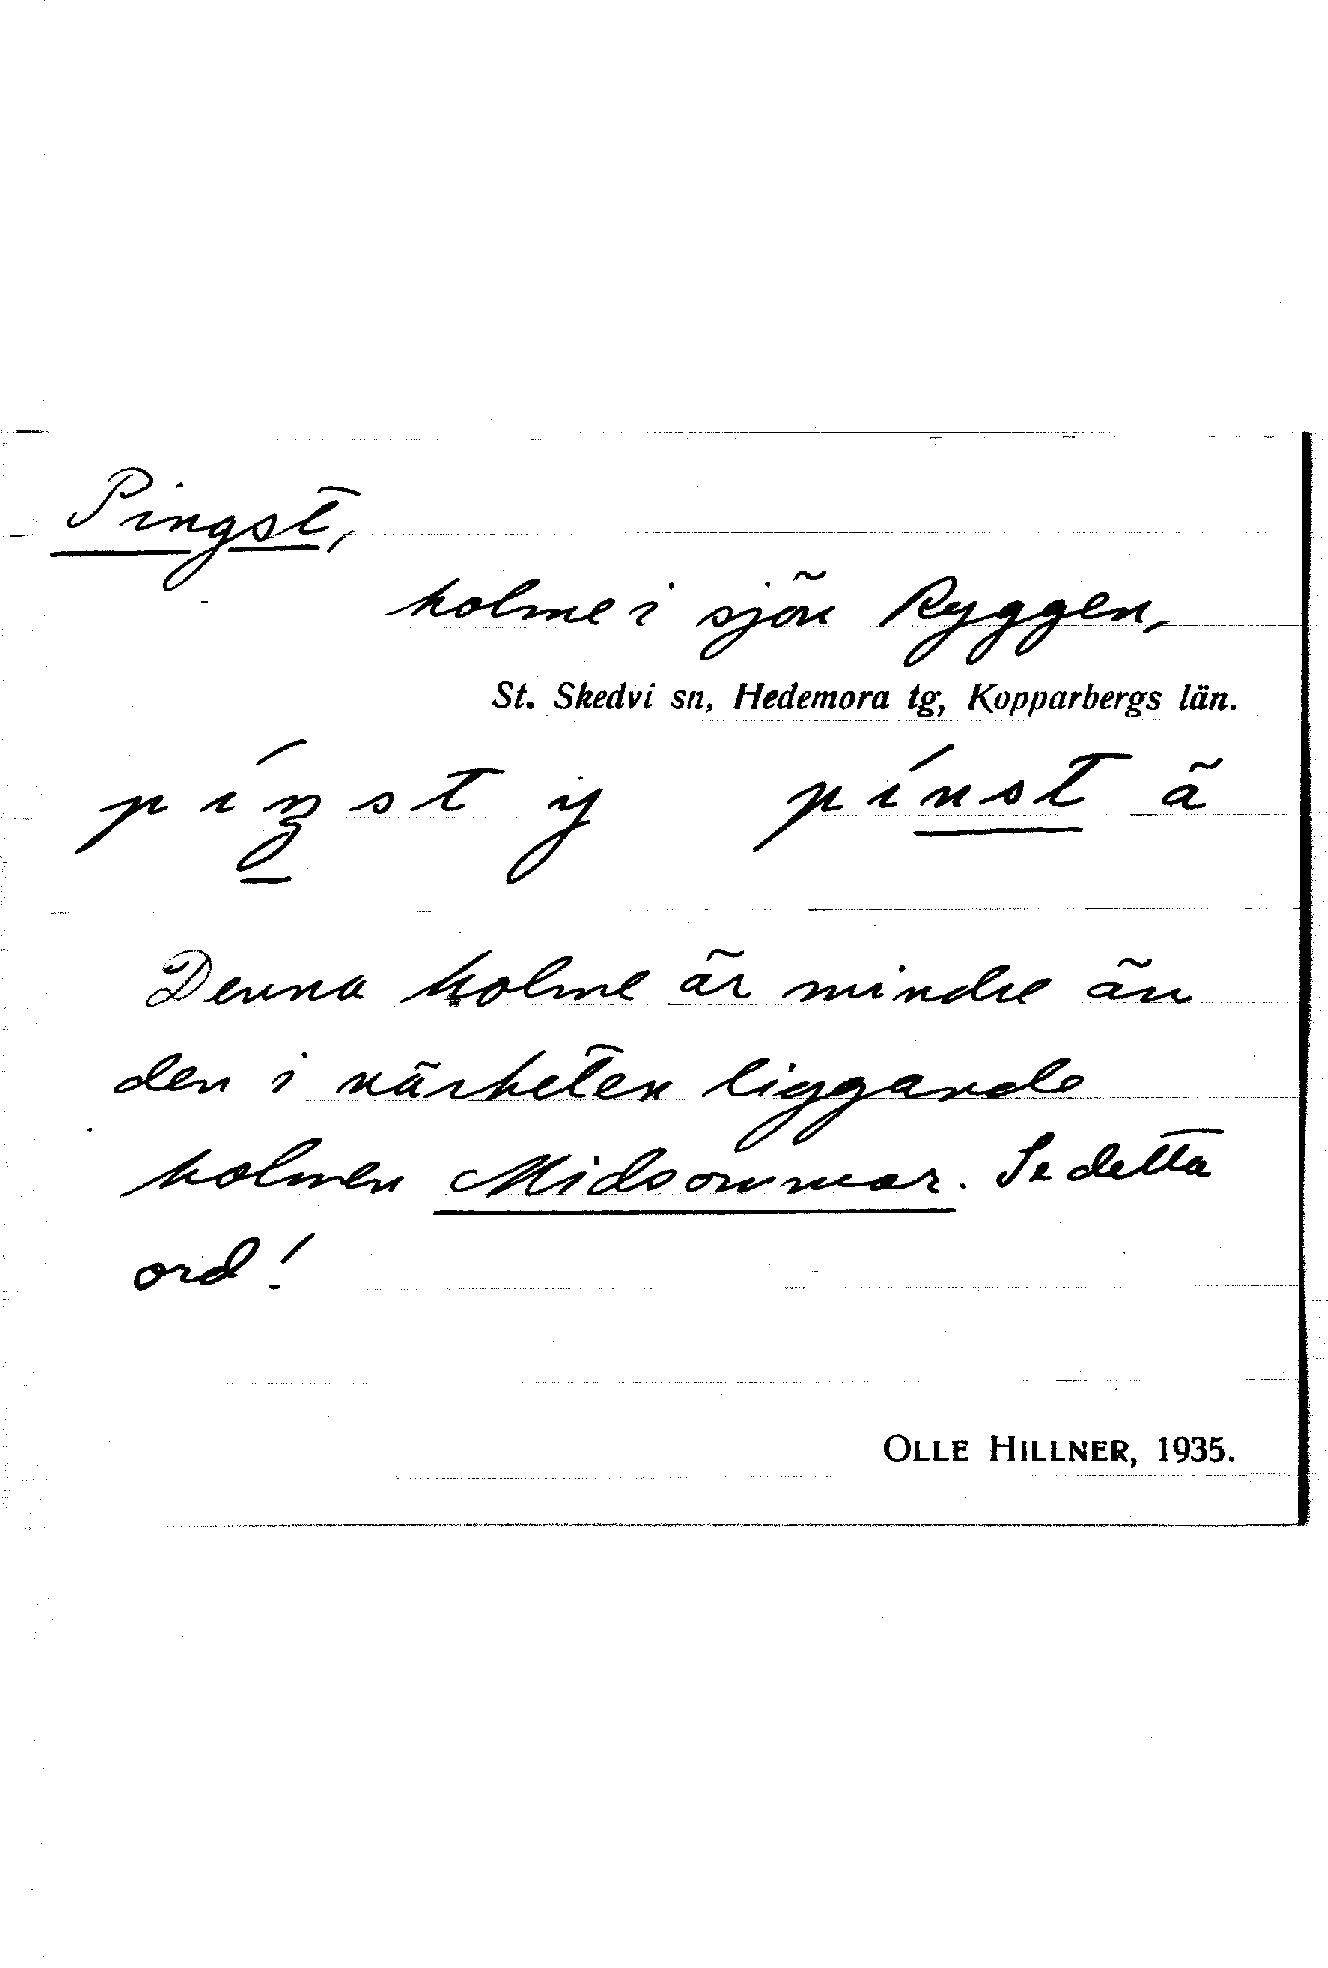 Pingst,
holme i sjön Ryggen,
St. Skedvi sn, Hedemora tg, Kopparbergs län.
píŋst y pínst ä
Denna holme är mindre än
den i närheten liggande
holmen Midsommar. Se detta
ord!
OLLE HILLNER, 1935.